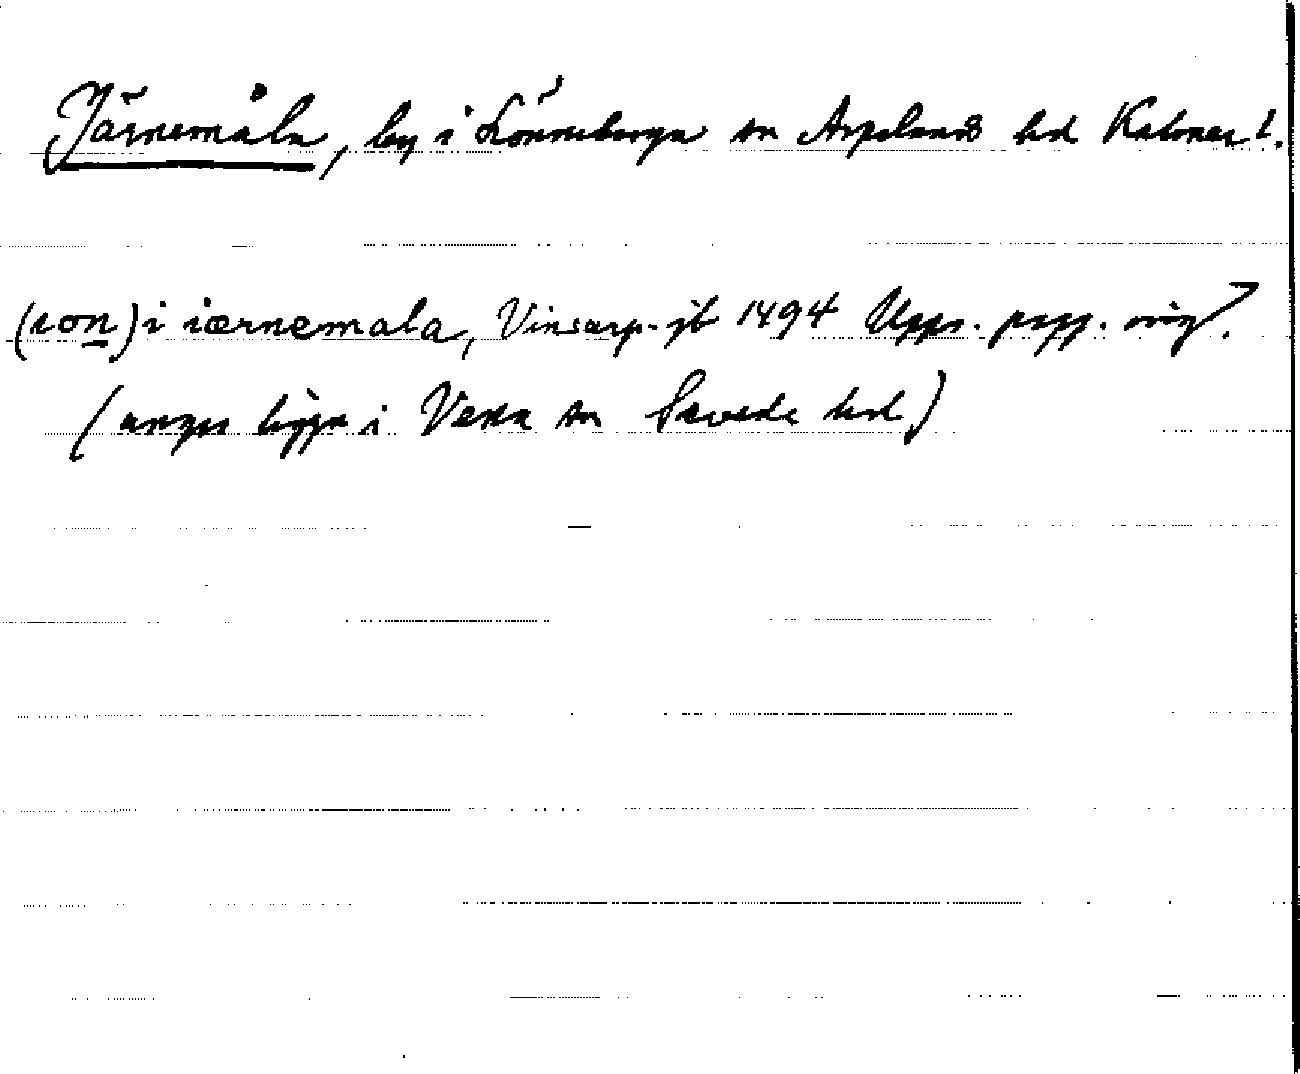 Järnemåla, by i Lönneberga sn Aspelands hd Kalmar l.
(ion) i iærnemala, Vinsarp. jb 1494 Upps. papp. orig.
(anges ligga i Vena sn Sevede hd)